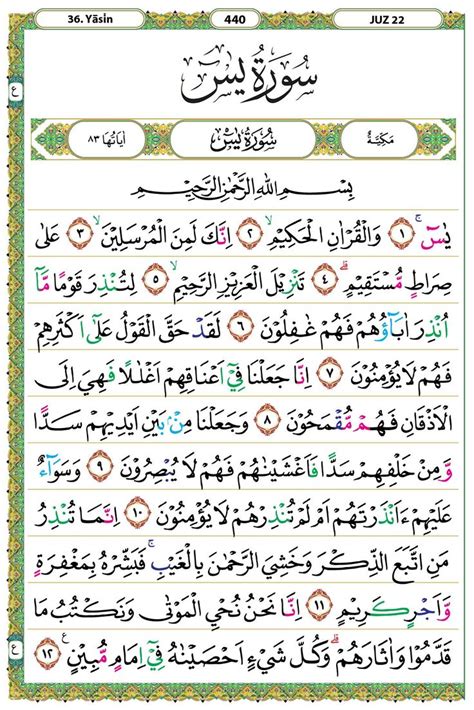 36. Yāsin
440
JUZ 22
سُورَةُ يٰسٓ
اٰيَاتُهَا ٨٣
سُوْرَةُ يٰسٓ
مَكِّيَّةٌ
بِسْمِ اللّٰهِ الرَّحْمٰنِ الرَّحِيْمِ
يٰسٓ ۚ ١ وَالْقُرْاٰنِ الْحَكِيْمِۙ ٢ اِنَّكَ لَمِنَ الْمُرْسَلِيْنَۙ ٣ عَلٰى
صِرَاطٍ مُّسْتَقِيْمٍۗ ٤ تَنْزِيْلَ الْعَزِيْزِ الرَّحِيْمِۙ ٥ لِتُنْذِرَ قَوْمًا مَّآ
اُنْذِرَ اٰبَاۤؤُهُمْ فَهُمْ غٰفِلُوْنَ ٦ لَقَدْ حَقَّ الْقَوْلُ عَلٰٓى اَكْثَرِهِمْ
فَهُمْ لَا يُؤْمِنُوْنَ ٧ اِنَّا جَعَلْنَا فِيْٓ اَعْنَاقِهِمْ اَغْلٰلًا فَهِيَ اِلَى
الْاَذْقَانِ فَهُمْ مُّقْمَحُوْنَ ٨ وَجَعَلْنَا مِنْۢ بَيْنِ اَيْدِيْهِمْ سَدًّا
وَّمِنْ خَلْفِهِمْ سَدًّا فَاَغْشَيْنٰهُمْ فَهُمْ لَا يُبْصِرُوْنَ ٩ وَسَوَاۤءٌ
عَلَيْهِمْ ءَاَنْذَرْتَهُمْ اَمْ لَمْ تُنْذِرْهُمْ لَا يُؤْمِنُوْنَ ١٠ اِنَّمَا تُنْذِرُ
مَنِ اتَّبَعَ الذِّكْرَ وَخَشِيَ الرَّحْمٰنَ بِالْغَيْبِۚ فَبَشِّرْهُ بِمَغْفِرَةٍ
وَّاَجْرٍ كَرِيْمٍ ١١ اِنَّا نَحْنُ نُحْيِ الْمَوْتٰى وَنَكْتُبُ مَا
قَدَّمُوْا وَاٰثَارَهُمْۗ وَكُلَّ شَيْءٍ اَحْصَيْنٰهُ فِيْٓ اِمَامٍ مُّبِيْنٍ ࣖ ١٢
ع
ع